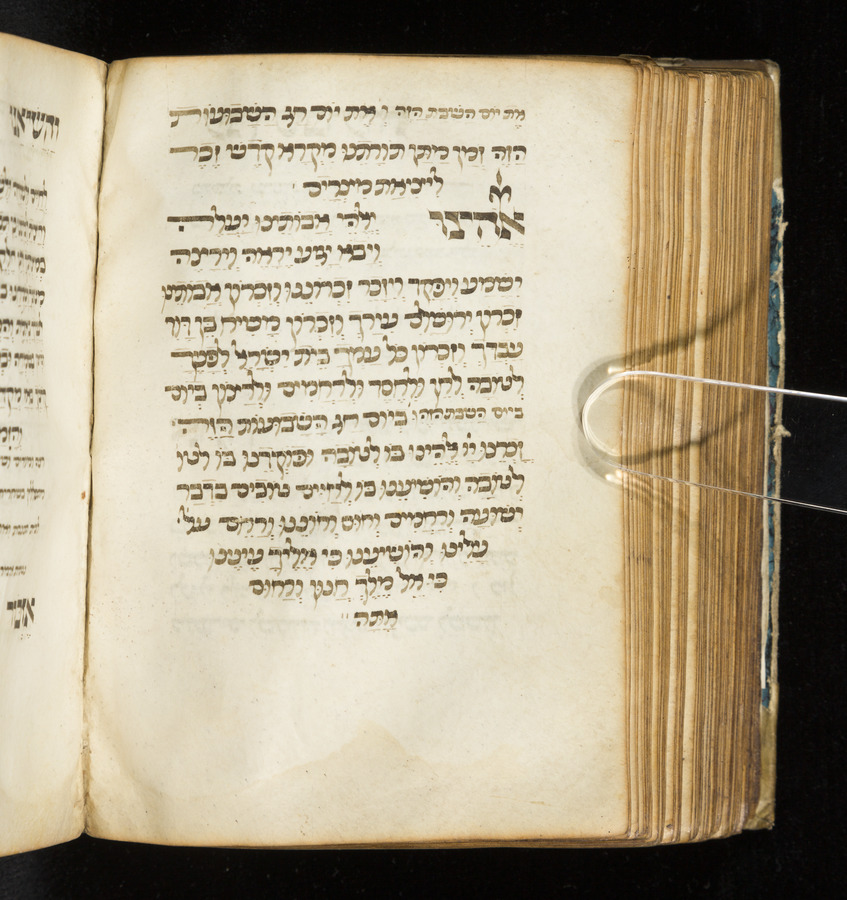 את יום השבת הזה ו את יום חג השבועות
הזה זמן מתן תורתנו מקרא קדש זכר
ליציאת מצרים
אלהינו ואלהי אבותינו יעלה
ויבא יגיע יראה וירצה
ישמע ויפקד ויזכר זכרוננו וזכרון אבותינו
זכרון ירושלם עירך וזכרון משיח בן דוד
עבדך וזכרון כל עמך בית ישראל לפליטה
לטובה לחן ולחסד ולרחמים ולרצון ביום
ביום השבת הזה וביום חג השבועות הזה
זכרנו יי אלהינו בו לטובה ופקדנו בו
לטובה והושיענו בו לחיים טובים בדבר
ישועה ורחמים וחוס וחוננו ורחם על
עלינו והושיענו כי אליך עינינו
כי אל מלך חנון ורחום
אתה